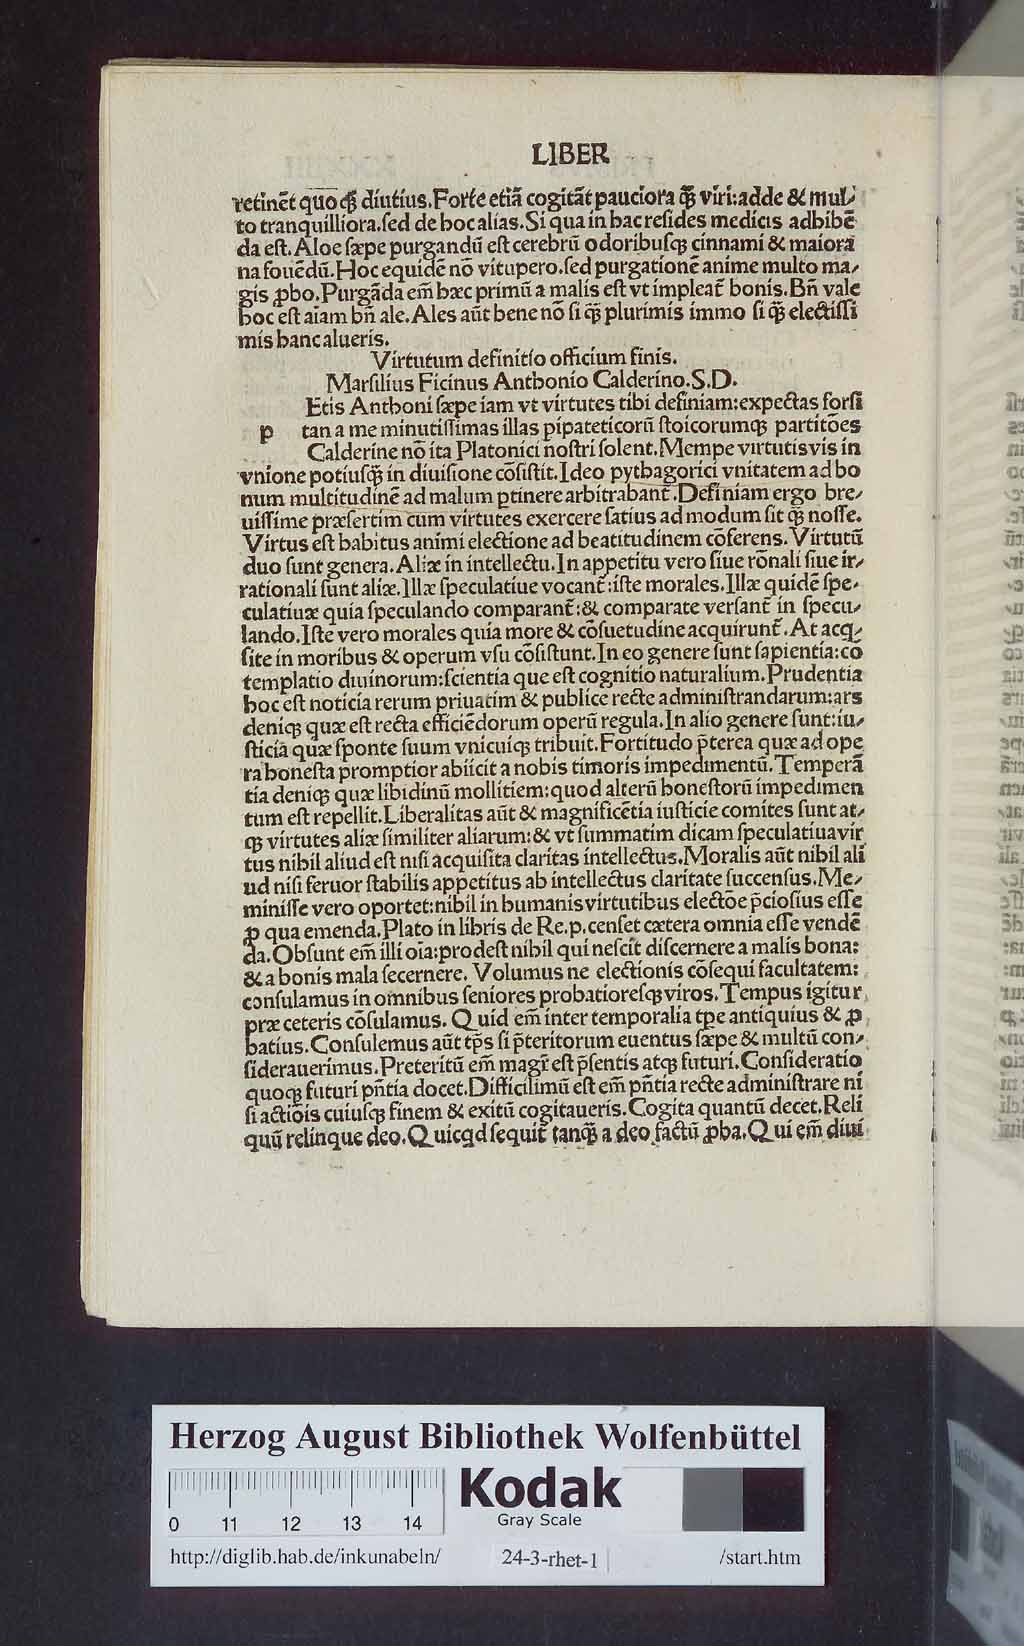 LIBER
retinēt quo qꝫ diutius. Forte etiā cogitāt pauciora q̄ꝫ viri: adde & mul⸗
to tranquilliora. sed de hoc alias. Si qua in hac resides medicis adhibē
da est. Aloe sæpe purgandū est cerebrū odoribusqꝫ cinnami & maiora
na fouēdū. Hoc equidē nō vitupero. sed purgationē anime multo ma⸗
gis ꝓbo. Purgāda em̄ hæc primū a malis est vt impleat̄ bonis. Bn̄ vale
hoc est aīam bn̄ ale. Ales aūt bene nō si q̄ꝫ plurimis immo si q̄ꝫ electissi
mis hanc alueris.
Virtutum definitio officium finis.
Marsilius Ficinus Anthonio Calderino. S. D.
Etis Anthoni sæpe iam vt virtutes tibi definiam: expectas forsi
p tan a me minutissimas illas pipateticorū stoicorumqꝫ partitōes
Calderine nō ita Platonici nostri solent. Mempe virtutis vis in
vnione potiusqꝫ in diuisione cōsistit. Ideo pythagorici vnitatem ad bo
num multitudinē ad malum ꝑtinere arbitrabant̄. Definiam ergo bre⸗
uissime præsertim cum virtutes exercere satius ad modum sit q̄ꝫ nosse.
Virtus est habitus animi electione ad beatitudinem cōferens. Virtutū
duo sunt genera. Aliæ in intellectu. In appetitu vero siue rōnali siue ir⸗
rationali sunt aliæ. Illæ speculatiue vocant̄: iste morales. Illæ quidē spe⸗
culatiuæ quia speculando comparant̄: & comparate versant̄ in specu⸗
lando. Iste vero morales quia more & cōsuetudine acquirunt̄. At acq⸗
site in moribus & operum vsu cōsistunt. In eo genere sunt sapientia: cō
templatio diuinorum: scientia que est cognitio naturalium. Prudentia
hoc est noticia rerum priuatim & publice recte administrandarum: ars
deniqꝫ quæ est recta efficiēdorum operū regula. In alio genere sunt: iu⸗
sticia quæ sponte suum vnicuiqꝫ tribuit. Fortitudo p̄terea quæ ad ope
ra honesta promptior abiicit a nobis timoris impedimentū. Temperā
tia deniqꝫ quæ libidinū mollitiem: quod alterū honestorū impedimen
tum est repellit. Liberalitas aūt & magnificētia iusticie comites sunt at⸗
qꝫ virtutes aliæ similiter aliarum: & vt summatim dicam speculatiua vir
tus nihil aliud est nisi acquisita claritas intellectus. Moralis aūt nihil ali
ud nisi feruor stabilis appetitus ab intellectus claritate succensus. Me⸗
minisse vero oportet: nihil in humanis virtutibus electōe p̄ciosius esse
ꝓ qua emenda. Plato in libris de Re. p. censet cætera omnia esse vendē
da. Obsunt em̄ illi oīa: prodest nihil qui nescit discernere a malis bona:
& a bonis mala secernere. Volumus ne electionis cōsequi facultatem:
consulamus in omnibus seniores probatioresqꝫ viros. Tempus igitur
præ ceteris cōsulamus. Quid em̄ inter temporalia tꝑe antiquius & ꝓ
batius. Consulemus aūt tp̄s si p̄teritorum euentus sæpe & multū con⸗
siderauerimus. Preteritū em̄ magr̄ est p̄sentis atqꝫ futuri. Consideratio
quoqꝫ futuri pn̄tia docet. Difficilimū est em̄ pn̄tia recte administrare ni
si actiōis cuiusqꝫ finem & exitū cogitaueris. Cogita quantū decet. Reli
quū relinque deo. Quicqd sequit̄ tanqꝫ a deo factū ꝓba. Qui em̄ diui
Herzog August Bibliothek Wolfenbüttel
Kodak
Gray Scale
0 11 12 13 14
http://diglib.hab.de/inkunabeln/ 24-3-rhet-1 /start.htm